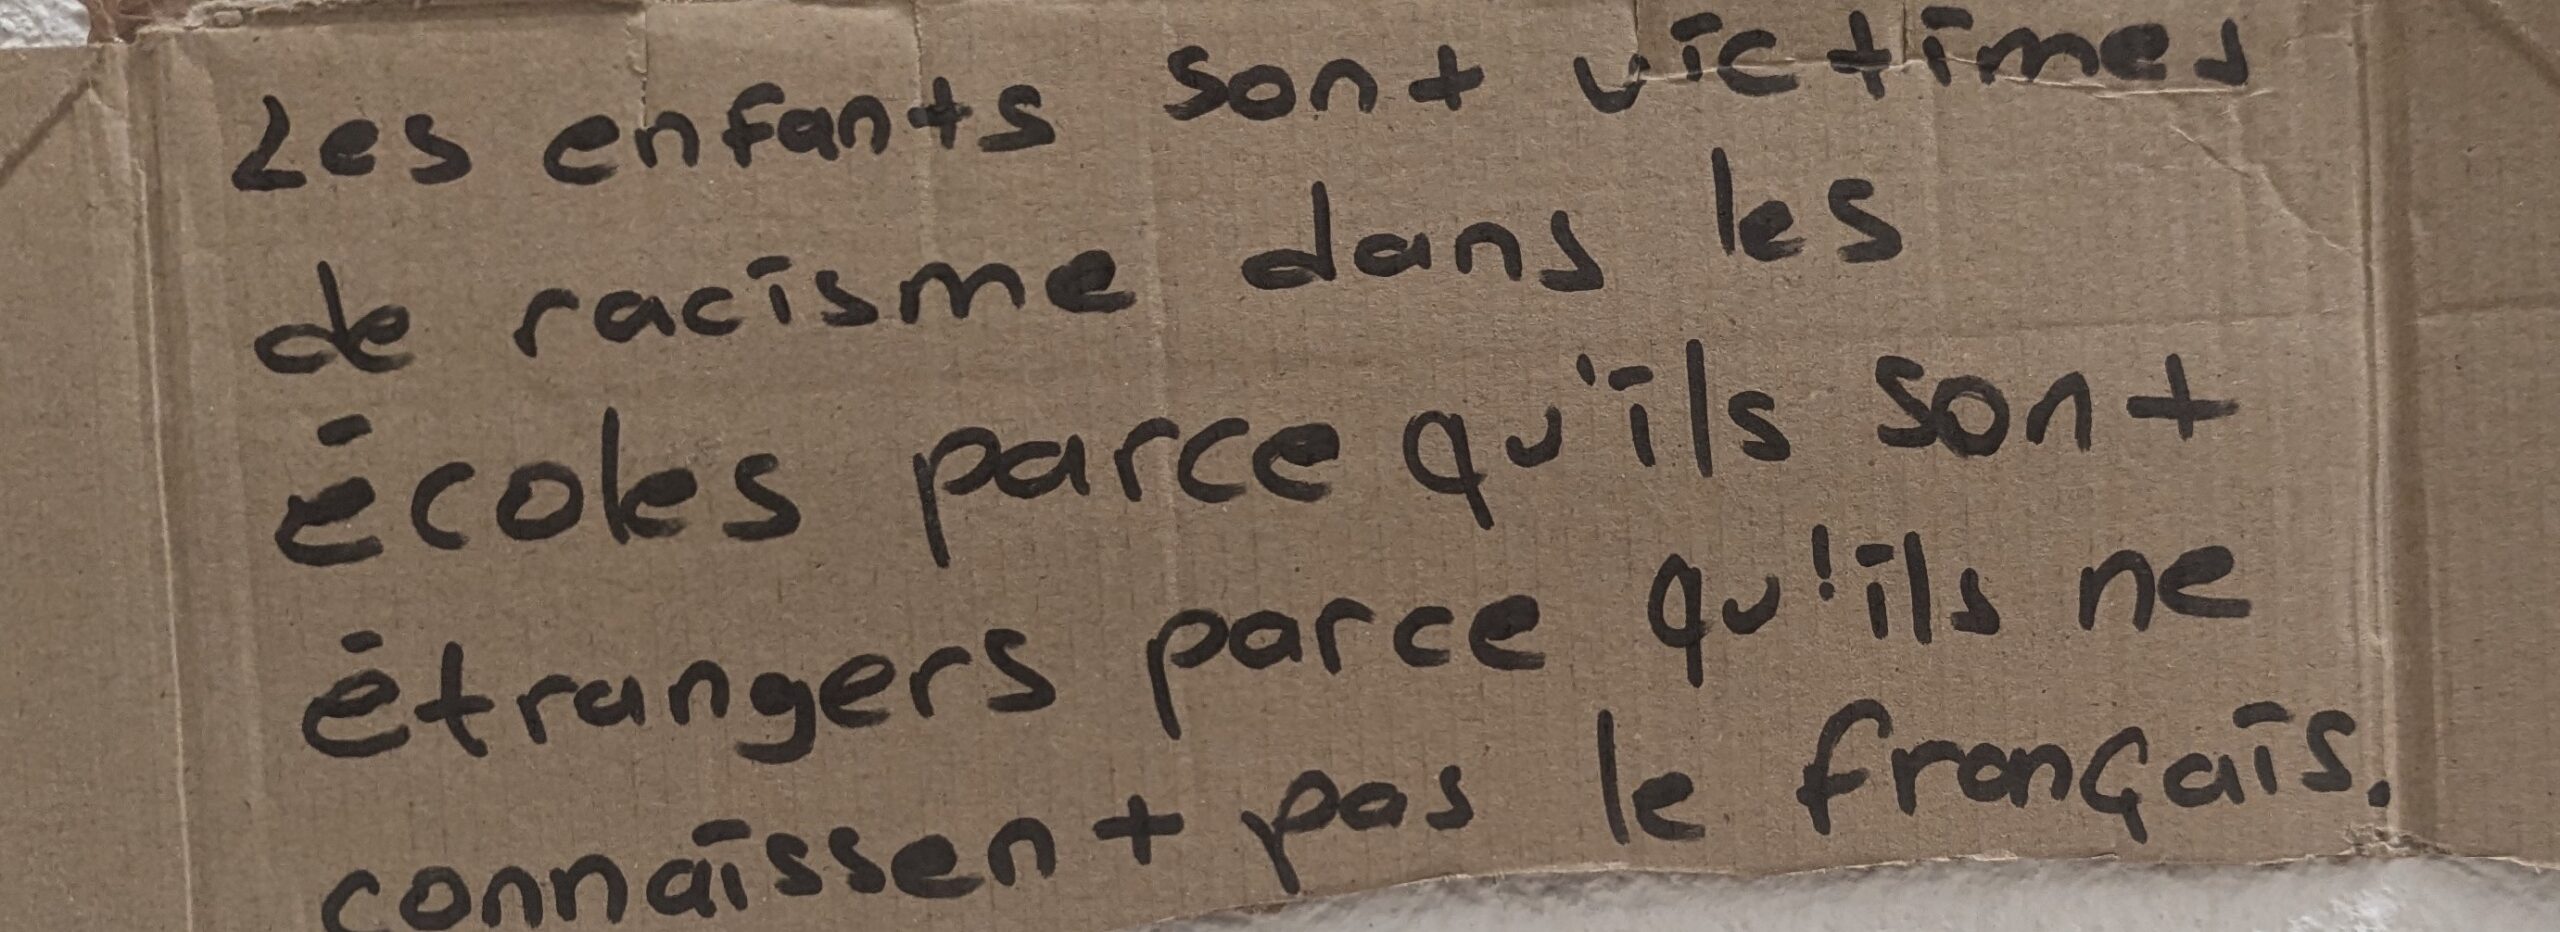 Les enfants sont victimes
de racisme dans les
écoles parce qu'ils sont
étrangers parce qu'ils ne
connaissent pas le français.